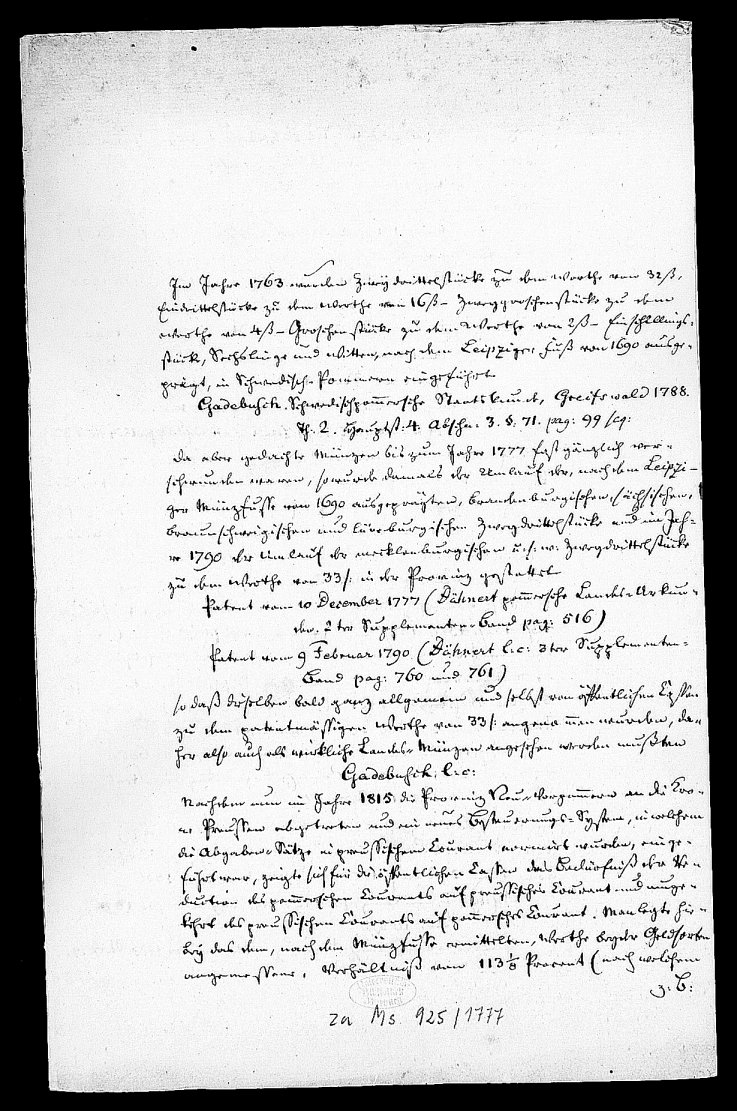 Im Jahre 1763 wurden Zweydrittelstücke zu dem Werthe von 32ß,
Eindrittelstücke zu dem Werthe von 16ß – Zweygroschenstücke zu dem
Werthe von 4ß – Groschenstücke zu dem Werthe von 2ß – Einschillings-
stück, Sechslinge und Witten, nach dem Leipziger Fuß von 1690 ausge-
prägt, in Schwedisch-Pommern eingeführt
Gadebusch, Schwedischpommersche Staatskunde, Greifswald 1788.
Th. 2. Hauptst: 4. Abschn. 3. §. 71. pag: 99 seq:
Da aber gedachte Münzen bis zum Jahre 1777 fast gänzlich ver-
schwunden waren, so wurde damals der Umlauf der, nach dem Leipzi-
ger Münzfusse von 1690 ausgeprägten, brandenburgischen, sächsischen,
braunschweigischen und lüneburgischen Zweydrittelstücke und im Jah-
re 1790 der Umlauf der mecklenburgischen u: s: w: Zweydrittelstücke
zu dem Werthe von 33ß: in der Provinz gestattet
Patent vom 10 December 1777 (Dähnert pommersche Landes-Urkun-
den. 2ter Supplementen-Band pag: 516)
Patent vom 9 Februar 1790 (Dähnert l: c: 3ter Supplementen-
Band pag: 760 und 761)
so daß dieselben bald ganz allgemein und selbst von öffentlichen Cassen
zu dem patentmässigen Werthe von 33ß: angenommen wurden, da-
her also auch als wirkliche Landes-Münzen angesehen werden mußten
Gadebusch l: c:
Nachdem nun im Jahre 1815 die Provinz Neu-Vorpommern an die Kro-
ne Preussen abgetreten und ein neues Besteuerungs-System, in welchem
die Abgaben-Sätze in preussischem Courant normirt wurden, einge-
führt war, zeigte sich für die öffentlichen Cassen das Bedürfniß der Re-
duction des pommerschen Courants auf preussisches Courant und umge-
kehrt des preussischen Courants auf pommersches Courant. Man legte hie-
bey das dem, nach dem Münzfusse ermittelten, Werthe beyder Geldsorten
angemessene, Verhältniß von 113 1/8 Procent (nach welchem
z: B:
za Ms 925/1777